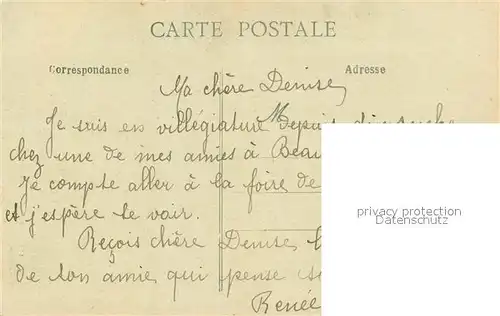 CARTE POSTALE
Correspondance
Adresse
Ma chère Denise,
Je suis en villégiature depuis dimanche
chez une de mes amies à
Je compte aller à la foire de
et j'espère te voir.
Reçois chère Denise,
de ton amie qui pense
Renée
privacy protection
Datenschutz